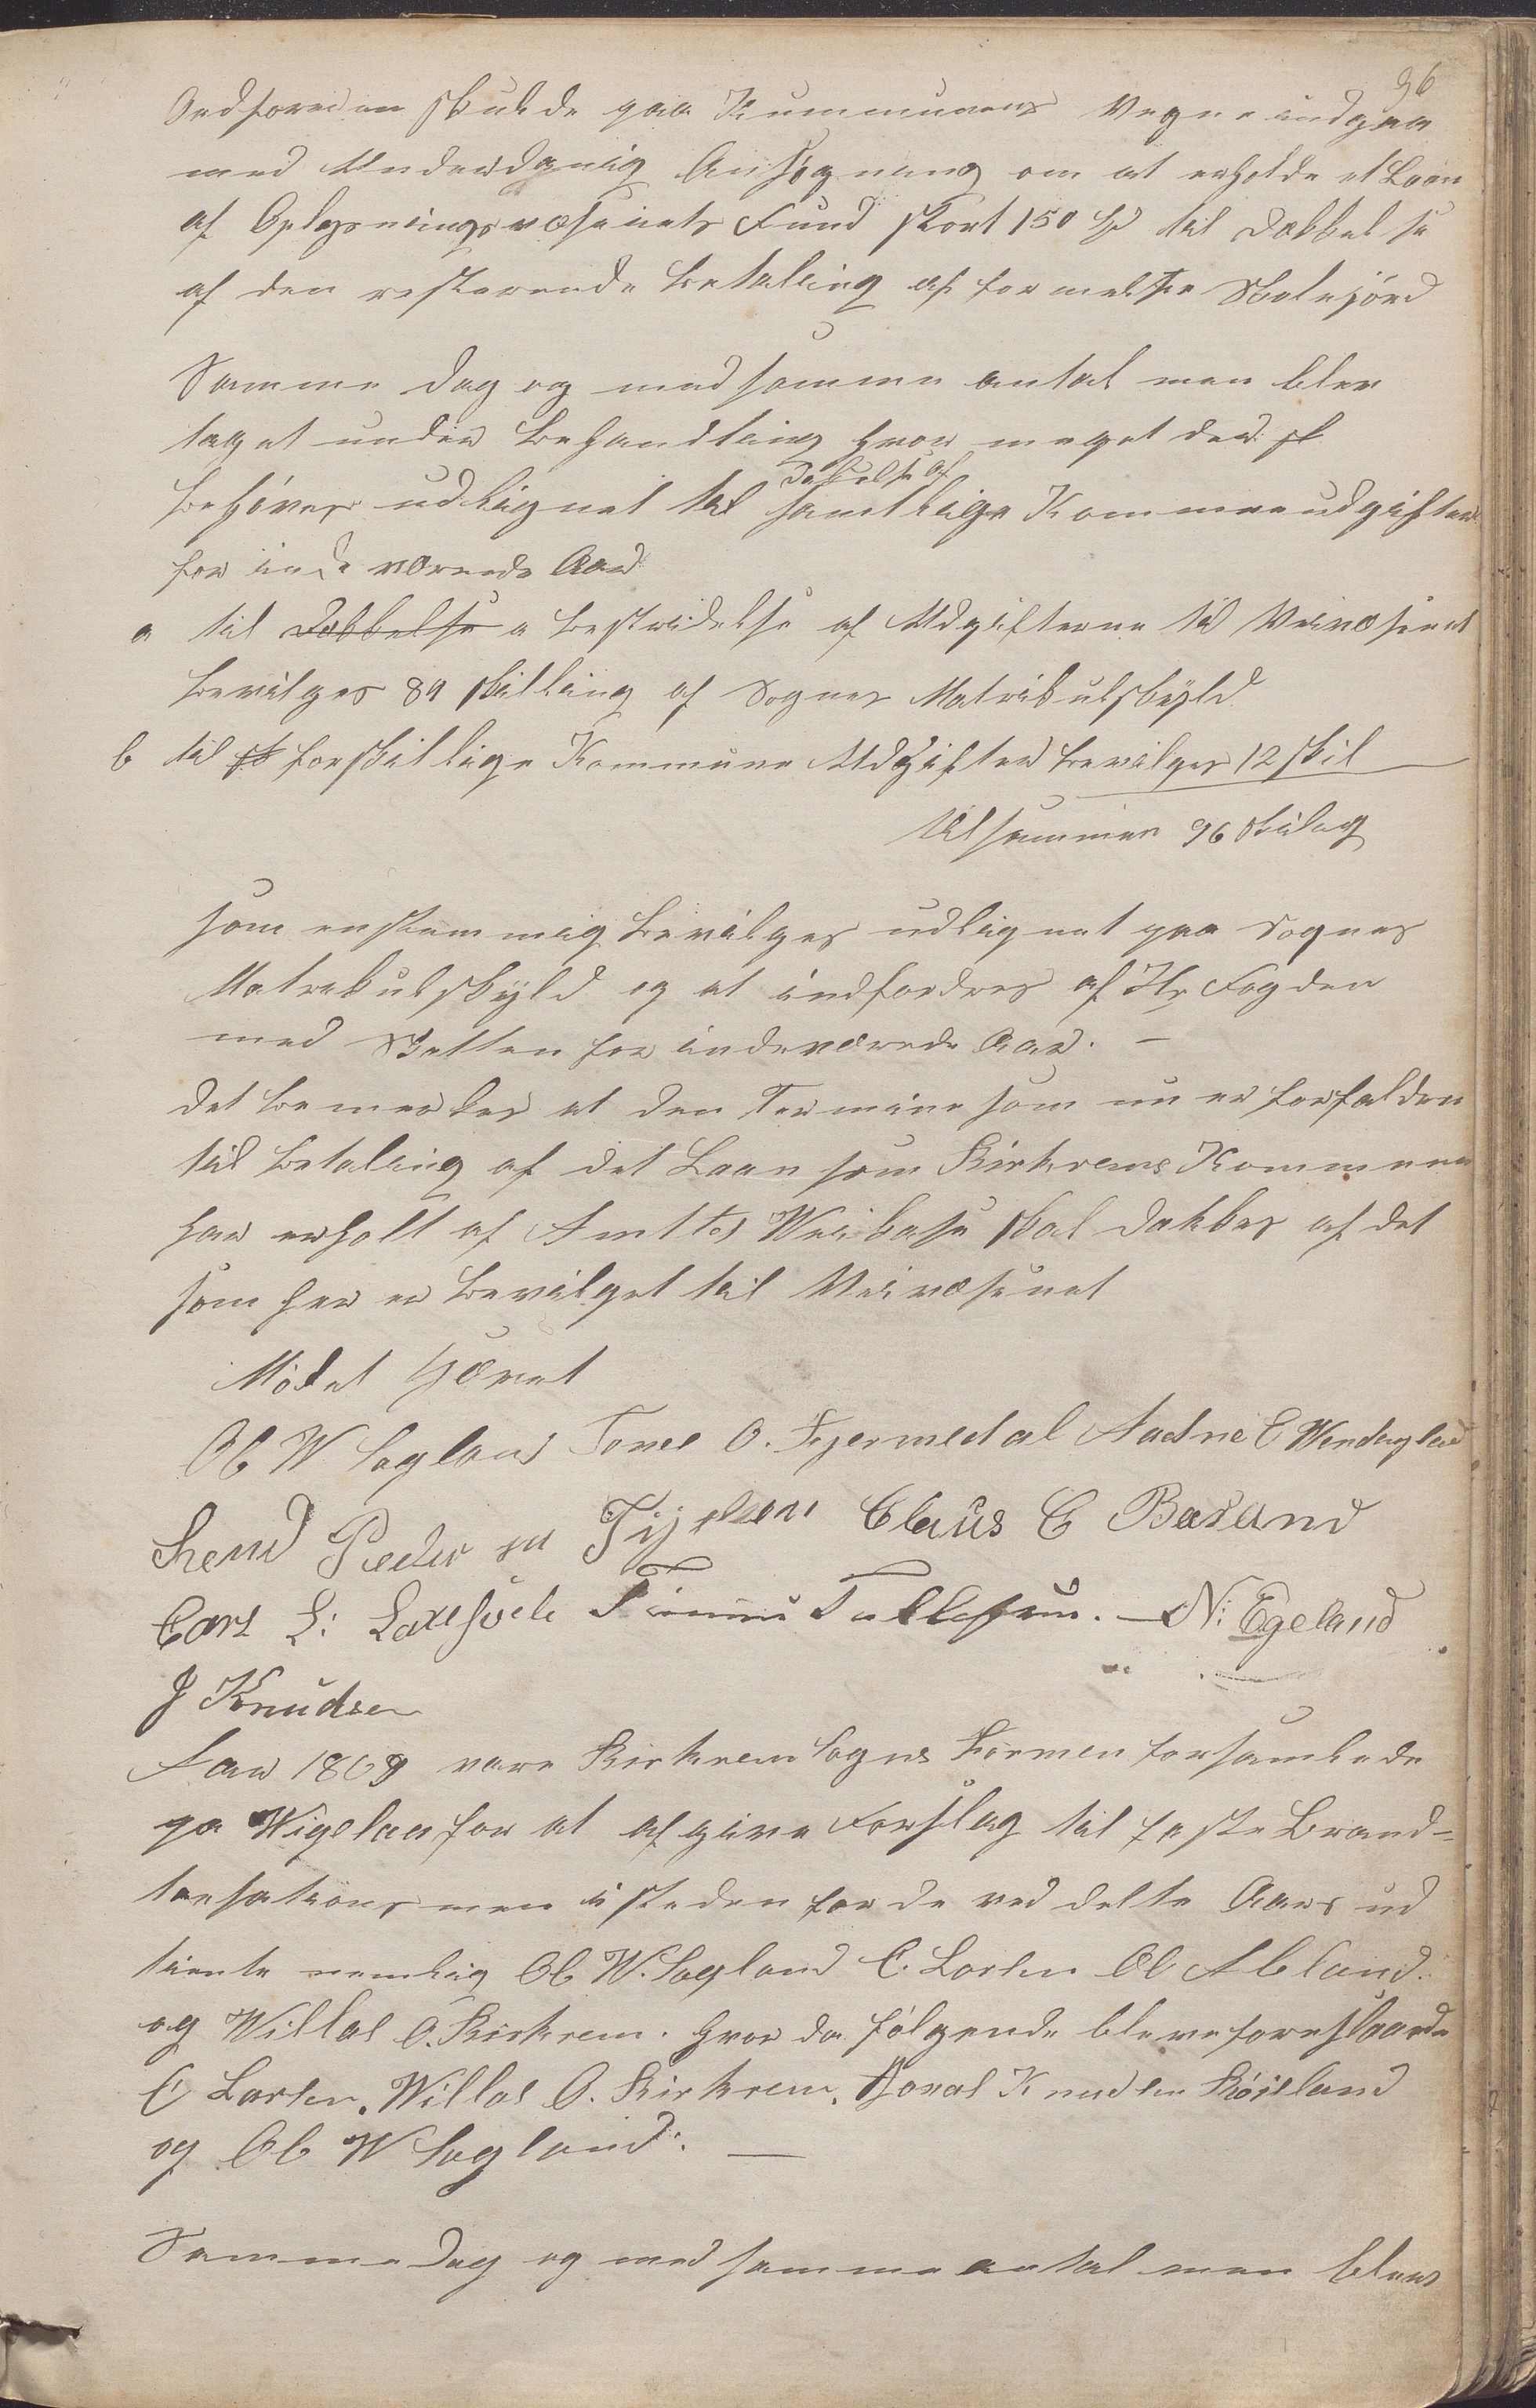 96
Ordføreren skulde paa Kummunens Vegne indgaa
med Underdanig Ansøgning om at erholde et Laan
af Oplysningsvæsenets Fund stort 150 Spd til Dækkelse
af den resterende Betaling af formeldte Skolejord
Samme Dag og med samme antal men blev
taget under Behandling hvor meget der sk
Dekkelse af
behøves udlignet til samtlige Kommuneudgifter
for inde værende Aar
a til Dækkelse a Bestridelse af Udgifterne til Veivæsenet
bevilges 84 skilling af Sognes Matrikulskyld
b til sk forskillige Kommune Udgifter bevilges 12 skil
Tilsammen 96 skilling
som enstemmig bevilges udlignet paa Sognes
Matrikulskyld og at indfordres af Hr Fogden
med Skatten for indeværede Aar. —
det bemerkes at den Termine som nu er forfalden
til betaling af det Laan som Birkrems Kommune
har erholt af Amttes Veikasse skal dækkes af det
som her er bevilget til Veivæsenet
Mødet Hævet
Ol W Sagland Tore O. Gjermedal Aadne E
Svend Peder Claus C Bøeland
Carl L: Tønnes Tollefsen. N: Egeland
J Knudsen
Aar 1869 vare Birkrem Sogns Formen forsamlede
pa Wigelaa for at afgive Forslag til faste Brand-
taxsations men i steden for de ved dette Aars ud
tiente nemlig Ol W. Sagland C. Larsen Ol Abeland
og Villas O. Birkrem. hvor da følgende bleve foreslaaede
C Larsen, Willas O. Birkrem, Jonas Knudsen Røiseland
og Ol W Sagland. —
Samme Dag og med samme antal men blev